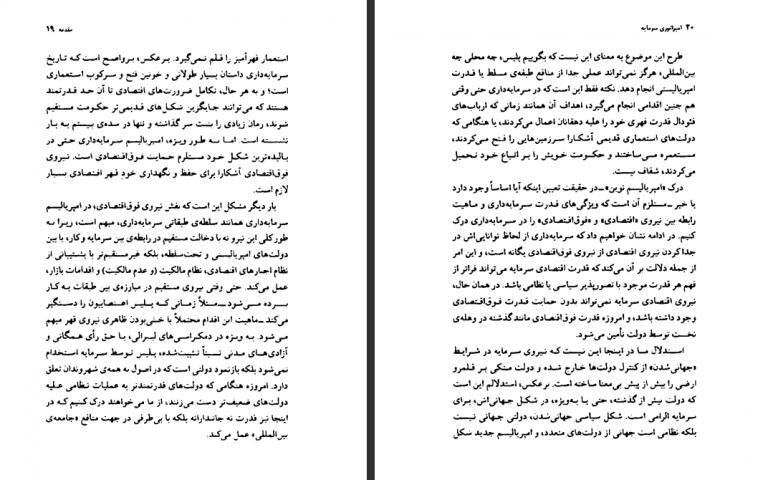 مقدمه ۱۹
استعمار قهرآمیز را قلم نمی‌گیرد. برعکس، پرواضح است که تاریخ
سرمایه‌داری داستان بسیار طولانی و خونین فتح و سرکوب استعماری
است؛ و به هر حال، تکامل ضرورت‌های اقتصادی تا آن حد قدرتمند
هستند که می‌توانند جایگزین شکل‌های قدیمی‌تر حکومت مستقیم
شوند، زمان زیادی را پشت سر گذاشته و تنها در سده‌ی بیستم به بار
نشسته است. اما به طور ویژه، امپریالیسم سرمایه‌داری حتی در
بالیده‌ترین شکل خود مستلزم حمایت فوق‌اقتصادی است. نیروی
فوق‌اقتصادی آشکارا برای حفظ و نگهداری خودِ قهر اقتصادی بسیار
لازم است.
بار دیگر مشکل این است که نقش نیروی فوق‌اقتصادی، در امپریالیسم
سرمایه‌داری همانند سلطه‌ی طبقاتی سرمایه‌داری، مبهم است، زیرا به
طور کلی این نیرو نه با دخالت مستقیم در رابطه‌ی بین سرمایه و کار، یا بین
دولت‌های امپریالیستی و تحت‌سلطه، بلکه غیرمستقیم‌تر با پشتیبانی از
نظام اجبارهای اقتصادی، نظام مالکیت (و عدم مالکیت) و اقدامات بازار،
عمل می‌کند. حتی وقتی نیروی مستقیم در مبارزه‌ی بین طبقات به کار
برده می‌شود ــ مثلاً زمانی که پلیس اعتصابیون را دستگیر
می‌کند ــ ماهیت این اقدام محتملاً با خنثی‌بودن ظاهری نیروی قهر مبهم
می‌شود. به ویژه در دمکراسی‌های لیبرالی، با حق رأی همگانی و
آزادی‌های مدنی نسبتاً تثبیت‌شده، پلیس توسط سرمایه استخدام
نمی‌شود بلکه بازنمود دولتی است که در اصول به همه‌ی شهروندان تعلق
دارد. امروزه هنگامی که دولت‌های قدرتمندتر به عملیات نظامی علیه
دولت‌های ضعیف‌تر دست می‌زنند، از ما می‌خواهند درک کنیم که در
اینجا نیز قدرت نه جاندارانه بلکه با بی‌طرفی در جهت منافع «جامعه‌ی
بین‌المللی» عمل می‌کند.
۲۰ امپراتوری سرمایه
طرح این موضوع به معنای این نیست که بگوییم پلیس، چه محلی چه
بین‌المللی، هرگز نمی‌تواند عملی جدا از منافع طبقه‌ی مسلط یا قدرت
امپریالیستی انجام دهد. نکته فقط این است که در سرمایه‌داری حتی وقتی
هم چنین اقدامی انجام می‌گیرد، اهداف آن همانند زمانی که ارباب‌های
فئودال قدرت قهری خود را علیه دهقانان اعمال می‌کردند، یا هنگامی که
دولت‌های استعماری قدیمی آشکارا سرزمین‌هایی را فتح می‌کردند،
مستعمره می‌ساختند و حکومت خویش را بر اتباع خود تحمیل
می‌کردند، شفاف نیست.
درک «امپریالیسم نوین» ــ در حقیقت تعیین اینکه آیا اساساً وجود دارد
یا خیر ــ مستلزم آن است که ویژگی‌های قدرت سرمایه‌داری و ماهیت
رابطه بین نیروی «اقتصادی» و «فوق‌اقتصادی» را در سرمایه‌داری درک
کنیم. در ادامه نشان خواهیم داد که سرمایه‌داری از لحاظ توانایی‌اش در
جدا کردن نیروی اقتصادی از نیروی فوق‌اقتصادی یگانه است، و این امر
از جمله دلالت بر آن می‌کند که قدرت اقتصادی سرمایه می‌تواند فراتر از
فهم هر قدرت موجود یا تصورپذیر سیاسی یا نظامی باشد. در همان حال،
نیروی اقتصادی سرمایه نمی‌تواند بدون حمایت قدرت فوق‌اقتصادی
وجود داشته باشد، و امروزه قدرت فوق‌اقتصادی مانند گذشته در وهله‌ی
نخست توسط دولت تأمین می‌شود.
استدلال ما در اینجا این نیست که نیروی سرمایه در شرایط
«جهانی‌شدن» از کنترل دولت‌ها خارج شده و دولت متکی بر قلمرو
ارضی را بیش از پیش بی‌معنا ساخته است. برعکس، استدلالم این است
که دولت بیش از گذشته، حتی یا به‌ویژه، در شکل جهانی‌اش، برای
سرمایه الزامی است. شکل سیاسی جهانی‌شدن، دولتی جهانی نیست
بلکه نظامی است جهانی از دولت‌های متعدد، و امپریالیسم جدید شکل